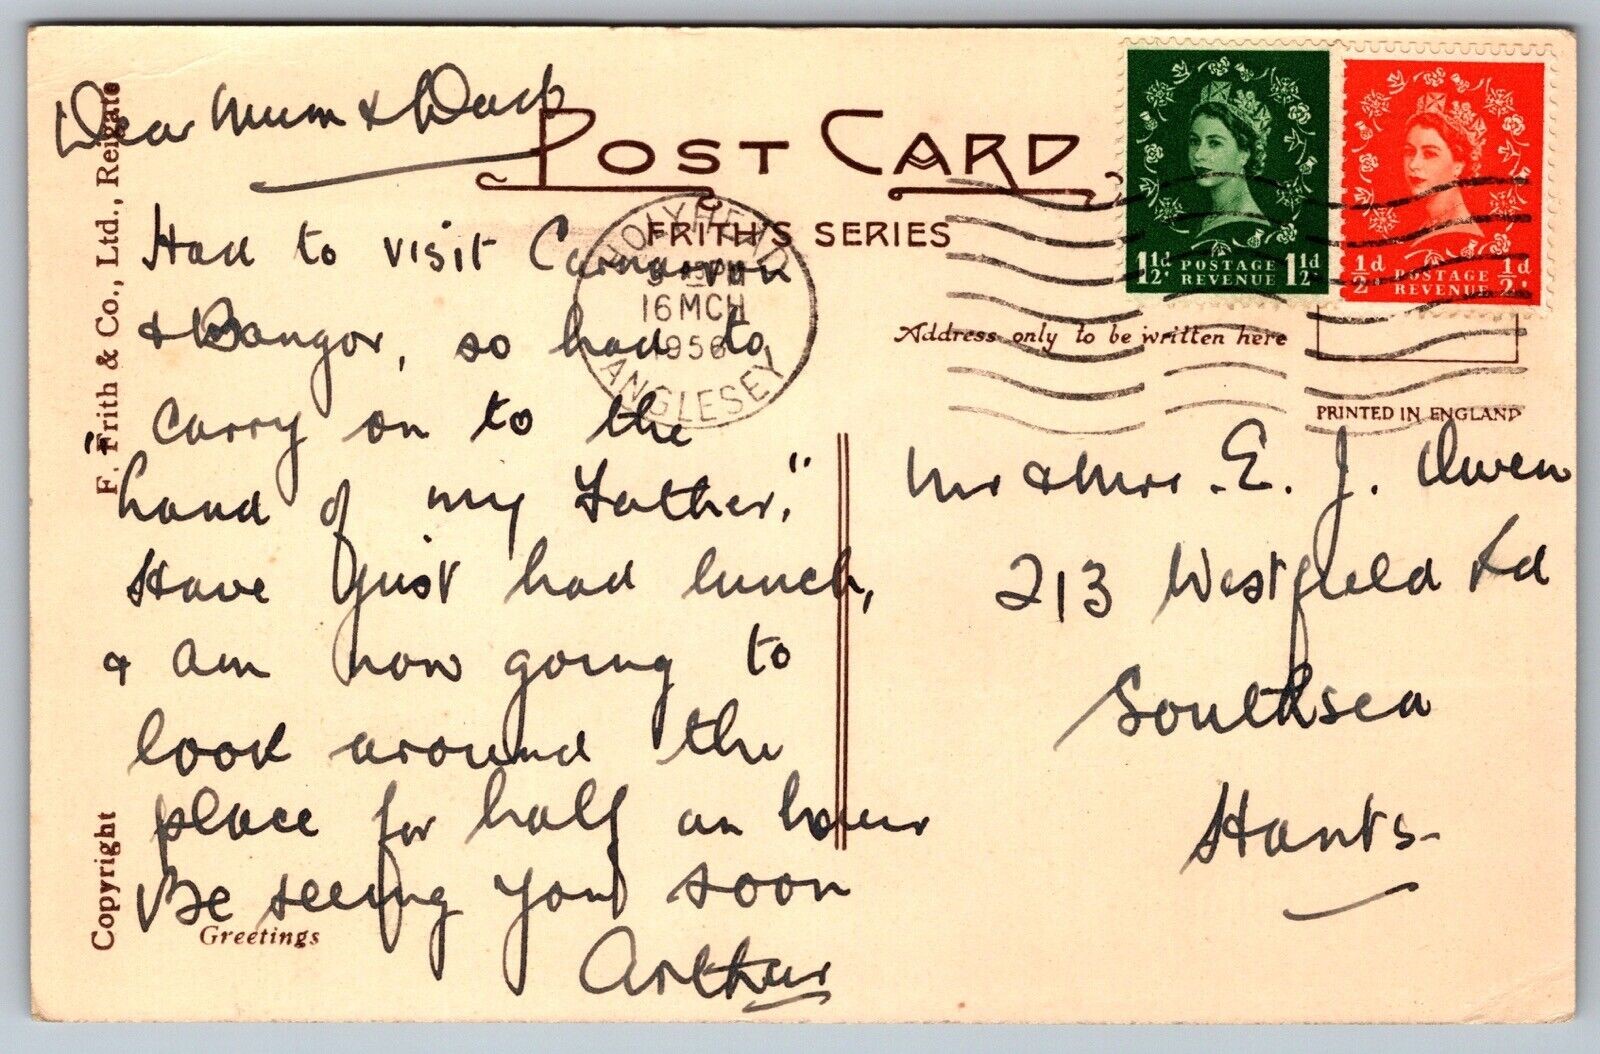 Dear Mum & Dad
POST CARD
FRITH'S SERIES
F. Frith & Co., Ltd., Reigate
Copyright
HOLYHEAD
16 MCH
1956
ANGLESEY
1½d POSTAGE REVENUE 1½d
½d POSTAGE REVENUE ½d
Address only to be written here
PRINTED IN ENGLAND
Had to visit Carnarvon
& Bangor, so had to
"carry on to the
hand of my Father."
Have just had lunch,
& am now going to
look around the
place for half an hour
Be seeing you soon
Greetings
Arthur
Mr & Mrs. E. J. Owen
213 Westfield Rd
Southsea
Hants-